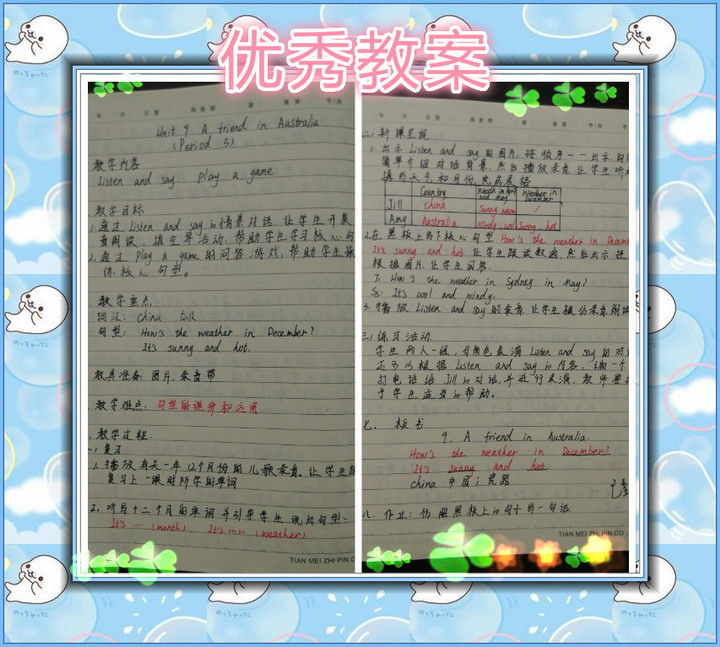 优秀教案
Unit 9 A friend in Australia
(Period 3)
教学内容
Listen and say. play a game
教学目标
1. 通过 Listen and say 的情景对话,让学生开展
填空等活动,帮助学生学习核心句
2. 通过 Play a game 的问答游戏,帮助学生
核心句型。
教学重点
词汇: china talk
句型: How's the weather in December?
It's sunny and hot.
教具准备 图片,录音带
教学难点: 句型的 和运用
教学过程
一、复习
1. 播放有关一年12个月份的儿歌录音。让学生
复习上一课时所学的单词
2. 听音十二个月的单词并引导学生说出句型
It's ... (month) It's ...... (weather)
TIAN MEI ZHI PIN.CO
二、新课呈现
1. 出示 Listen and say 的图片,按顺序一一出示,
简单介绍对话背景,然后播放录音,让学生听
的天气和月份,完成表格
Country Weather in
December
Jill China Sunny warm /
Amy Australia windy cool Sunny hot
2. 在黑板上 核心句型 How's the weather in Decem
It's sunny and hot 让学生跟读数遍,然后出示
根据图片,让学生问答
T: How's the weather in Sydney in May?
Ss: It's cool and windy.
3. 播放 Listen and say 的录音,让学生模仿录音朗读
三、练习活动
学生两人一组,分角色表演 Listen and say 的对
还可以根据 Listen and say 的内容,
打电话给 Jill 的对话,并进行表演,教师要
于学生适当的帮助。
七、板书
9. A friend in Australia.
How's the weather in December?
It's sunny and hot
china 中国;瓷器
八、作业: 仿照黑板上的句子
TIAN MEI ZHI PIN.CO